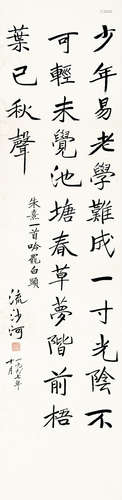 少年易老學難成一寸光陰不
可輕未覺池塘春草夢階前梧
葉已秋聲
朱熹一首吟罷白頭
流沙河
一九九七年
十月